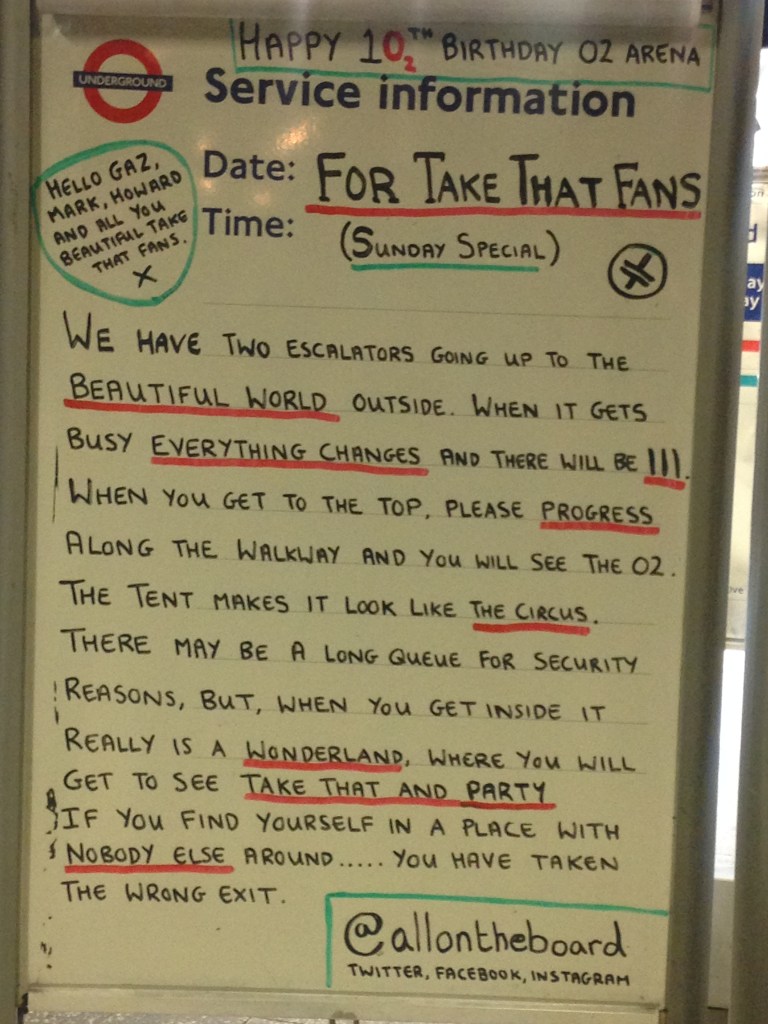 HAPPY 10₂TH BIRTHDAY O2 ARENA
UNDERGROUND
Service information
HELLO GAZ,
MARK, HOWARD
AND ALL YOU
BEAUTIFUL TAKE
THAT FANS.
X
Date: FOR TAKE THAT FANS
Time: (SUNDAY SPECIAL)
WE HAVE TWO ESCALATORS GOING UP TO THE
BEAUTIFUL WORLD OUTSIDE. WHEN IT GETS
BUSY EVERYTHING CHANGES AND THERE WILL BE III.
WHEN YOU GET TO THE TOP, PLEASE PROGRESS
ALONG THE WALKWAY AND YOU WILL SEE THE O2.
THE TENT MAKES IT LOOK LIKE THE CIRCUS.
THERE MAY BE A LONG QUEUE FOR SECURITY
REASONS, BUT, WHEN YOU GET INSIDE IT
REALLY IS A WONDERLAND, WHERE YOU WILL
GET TO SEE TAKE THAT AND PARTY
IF YOU FIND YOURSELF IN A PLACE WITH
NOBODY ELSE AROUND..... YOU HAVE TAKEN
THE WRONG EXIT.
@allontheboard
TWITTER, FACEBOOK, INSTAGRAM